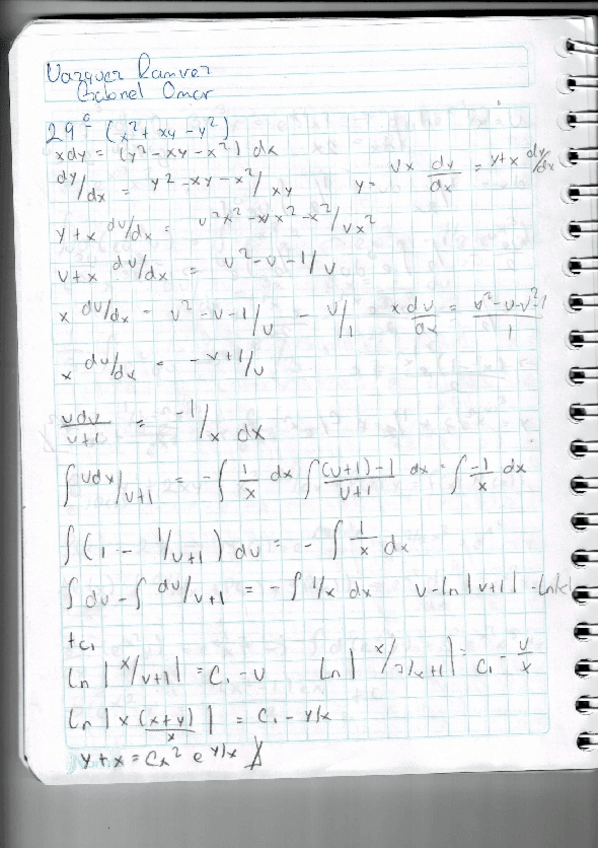 Vazquez Ramirez
Gabriel Omar
29º- (x²+ xy - y²)
xdy = (y² - xy - x²) dx
dy/dx = y² - xy - x²/xy y= vx dy/dx = y+x dy/dx
y+x dv/dx = v²x² - xvx² - x²/vx²
v+x dv/dx = v² - v - 1/v
x dv/dx = v² - v - 1/v - v/1 x dv/dx = v² - v - v² - 1/1
x dv/dx = -v+1/v
vdv/v+1 = -1/x dx
∫vdx/v+1 = -∫ 1/x dx ∫ (v+1)-1/v+1 dx = ∫ -1/x dx
∫(1 - 1/v+1) dv = - ∫ 1/x dx
∫dv - ∫ dv/v+1 = -∫ 1/x dx v - ln|v+1| = -ln|x|
+c₁
ln |x/v+1| = C₁ - v Ln | x/y/x+1| = C₁ - v/x
ln |x (x+y)/x | = C₁ - y/x
y+x = Cx² e y/x